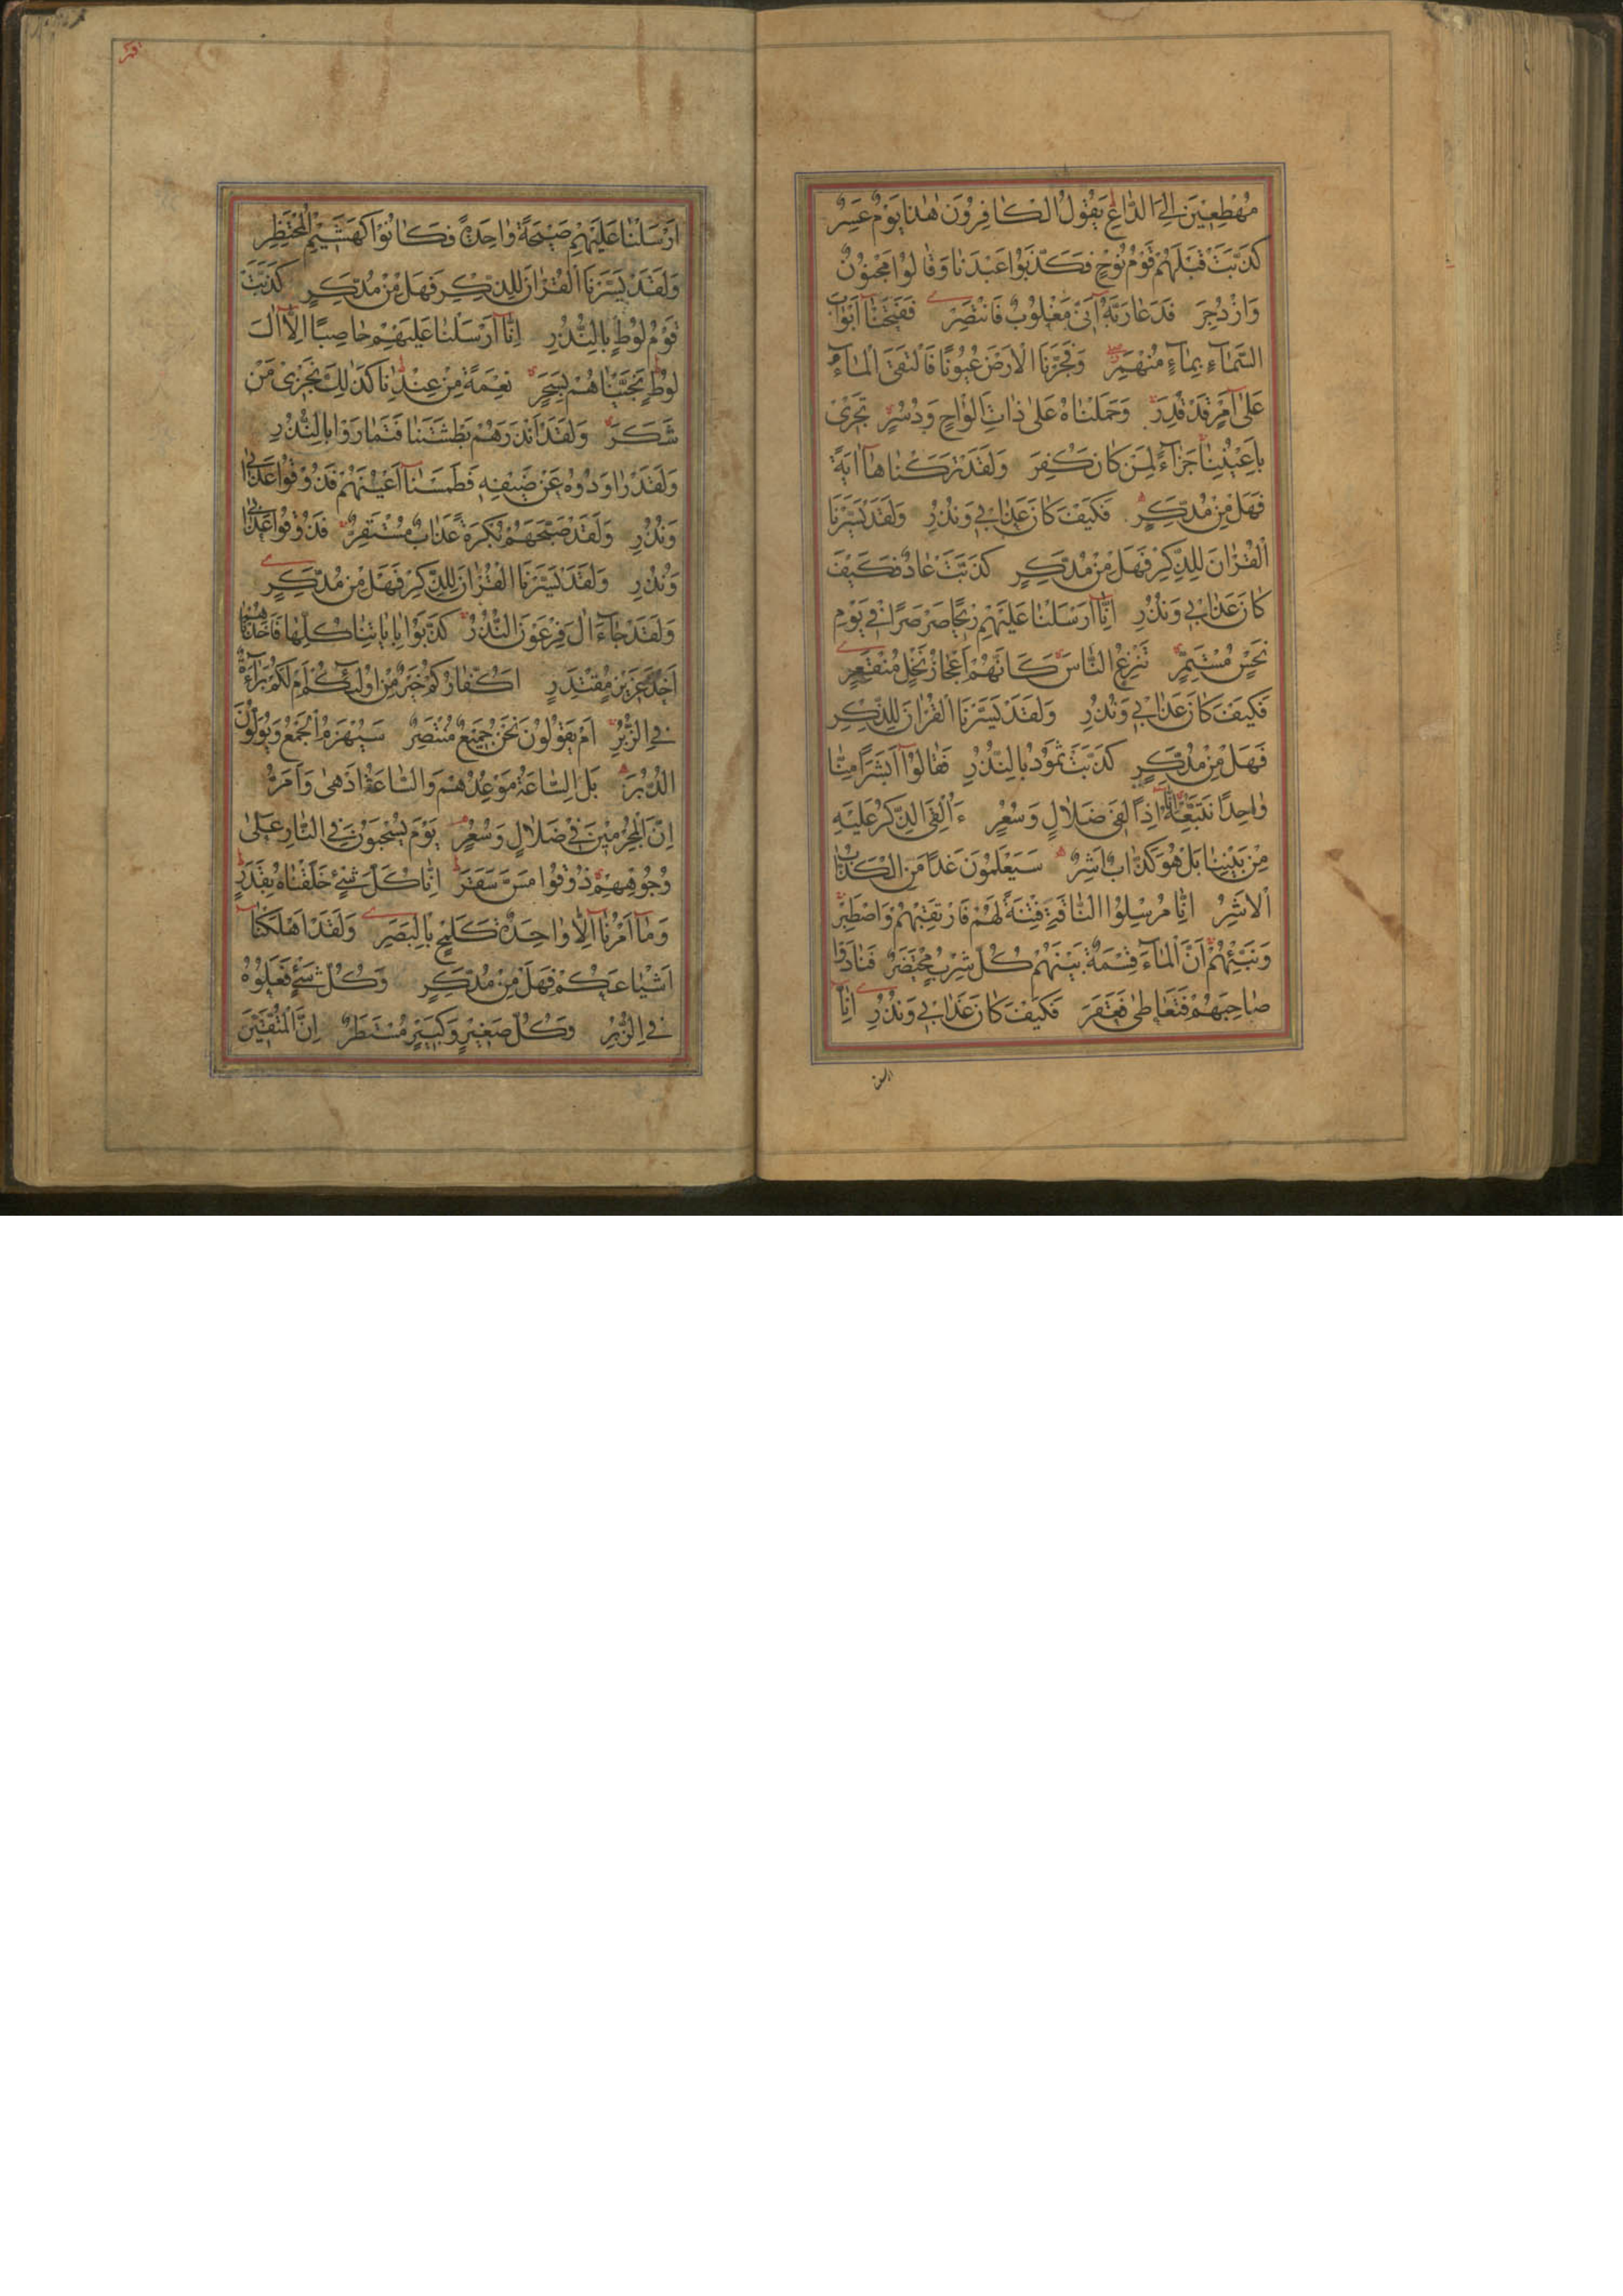 مُهْطِعِينَ إِلَى الدَّاعِ يَقُولُ الْكَافِرُونَ هٰذَا يَوْمٌ عَسِرٌ
كَذَّبَتْ قَبْلَهُمْ قَوْمُ نُوحٍ فَكَذَّبُوا عَبْدَنَا وَقَالُوا مَجْنُونٌ
وَازْدُجِرَ فَدَعَا رَبَّهُ أَنِّي مَغْلُوبٌ فَانْتَصِرْ فَفَتَحْنَا أَبْوَابَ
السَّمَاءِ بِمَاءٍ مُنْهَمِرٍ وَفَجَّرْنَا الْأَرْضَ عُيُونًا فَالْتَقَى الْمَاءُ
عَلَى أَمْرٍ قَدْ قُدِرَ وَحَمَلْنَاهُ عَلَى ذَاتِ أَلْوَاحٍ وَدُسُرٍ تَجْرِي
بِأَعْيُنِنَا جَزَاءً لِمَنْ كَانَ كُفِرَ وَلَقَدْ تَرَكْنَاهَا آيَةً
فَهَلْ مِنْ مُدَّكِرٍ فَكَيْفَ كَانَ عَذَابِي وَنُذُرِ وَلَقَدْ يَسَّرْنَا
الْقُرْآنَ لِلذِّكْرِ فَهَلْ مِنْ مُدَّكِرٍ كَذَّبَتْ عَادٌ فَكَيْفَ
كَانَ عَذَابِي وَنُذُرِ إِنَّا أَرْسَلْنَا عَلَيْهِمْ رِيحًا صَرْصَرًا فِي يَوْمِ
نَحْسٍ مُسْتَمِرٍّ تَنْزِعُ النَّاسَ كَأَنَّهُمْ أَعْجَازُ نَخْلٍ مُنْقَعِرٍ
فَكَيْفَ كَانَ عَذَابِي وَنُذُرِ وَلَقَدْ يَسَّرْنَا الْقُرْآنَ لِلذِّكْرِ
فَهَلْ مِنْ مُدَّكِرٍ كَذَّبَتْ ثَمُودُ بِالنُّذُرِ فَقَالُوا أَبَشَرًا مِنَّا
وَاحِدًا نَتَّبِعُهُ إِنَّا إِذًا لَفِي ضَلَالٍ وَسُعُرٍ ءَأُلْقِيَ الذِّكْرُ عَلَيْهِ
مِنْ بَيْنِنَا بَلْ هُوَ كَذَّابٌ أَشِرٌ سَيَعْلَمُونَ غَدًا مَنِ الْكَذَّابُ
الْأَشِرُ إِنَّا مُرْسِلُوا النَّاقَةِ فِتْنَةً لَهُمْ فَارْتَقِبْهُمْ وَاصْطَبِرْ
وَنَبِّئْهُمْ أَنَّ الْمَاءَ قِسْمَةٌ بَيْنَهُمْ كُلُّ شِرْبٍ مُحْتَضَرٌ فَنَادَوْا
صَاحِبَهُمْ فَتَعَاطَى فَعَقَرَ فَكَيْفَ كَانَ عَذَابِي وَنُذُرِ إِنَّا
أَرْسَلْنَا عَلَيْهِمْ صَيْحَةً وَاحِدَةً فَكَانُوا كَهَشِيمِ الْمُحْتَظِرِ
وَلَقَدْ يَسَّرْنَا الْقُرْآنَ لِلذِّكْرِ فَهَلْ مِنْ مُدَّكِرٍ كَذَّبَتْ
قَوْمُ لُوطٍ بِالنُّذُرِ إِنَّا أَرْسَلْنَا عَلَيْهِمْ حَاصِبًا إِلَّا آلَ
لُوطٍ نَجَّيْنَاهُمْ بِسَحَرٍ نِعْمَةً مِنْ عِنْدِنَا كَذٰلِكَ نَجْزِي مَنْ
شَكَرَ وَلَقَدْ أَنْذَرَهُمْ بَطْشَتَنَا فَتَمَارَوْا بِالنُّذُرِ
وَلَقَدْ رَاوَدُوهُ عَنْ ضَيْفِهِ فَطَمَسْنَا أَعْيُنَهُمْ فَذُوقُوا عَذَابِي
وَنُذُرِ وَلَقَدْ صَبَّحَهُمْ بُكْرَةً عَذَابٌ مُسْتَقِرٌّ فَذُوقُوا عَذَابِي
وَنُذُرِ وَلَقَدْ يَسَّرْنَا الْقُرْآنَ لِلذِّكْرِ فَهَلْ مِنْ مُدَّكِرٍ
وَلَقَدْ جَاءَ آلَ فِرْعَوْنَ النُّذُرُ كَذَّبُوا بِآيَاتِنَا كُلِّهَا فَأَخَذْنَاهُمْ
أَخْذَ عَزِيزٍ مُقْتَدِرٍ أَكُفَّارُكُمْ خَيْرٌ مِنْ أُولٰئِكُمْ أَمْ لَكُمْ بَرَاءَةٌ
فِي الزُّبُرِ أَمْ يَقُولُونَ نَحْنُ جَمِيعٌ مُنْتَصِرٌ سَيُهْزَمُ الْجَمْعُ وَيُوَلُّونَ
الدُّبُرَ بَلِ السَّاعَةُ مَوْعِدُهُمْ وَالسَّاعَةُ أَدْهَى وَأَمَرُّ
إِنَّ الْمُجْرِمِينَ فِي ضَلَالٍ وَسُعُرٍ يَوْمَ يُسْحَبُونَ فِي النَّارِ عَلَى
وُجُوهِهِمْ ذُوقُوا مَسَّ سَقَرَ إِنَّا كُلَّ شَيْءٍ خَلَقْنَاهُ بِقَدَرٍ
وَمَا أَمْرُنَا إِلَّا وَاحِدَةٌ كَلَمْحٍ بِالْبَصَرِ وَلَقَدْ أَهْلَكْنَا
أَشْيَاعَكُمْ فَهَلْ مِنْ مُدَّكِرٍ وَكُلُّ شَيْءٍ فَعَلُوهُ
فِي الزُّبُرِ وَكُلُّ صَغِيرٍ وَكَبِيرٍ مُسْتَطَرٌ إِنَّ الْمُتَّقِينَ